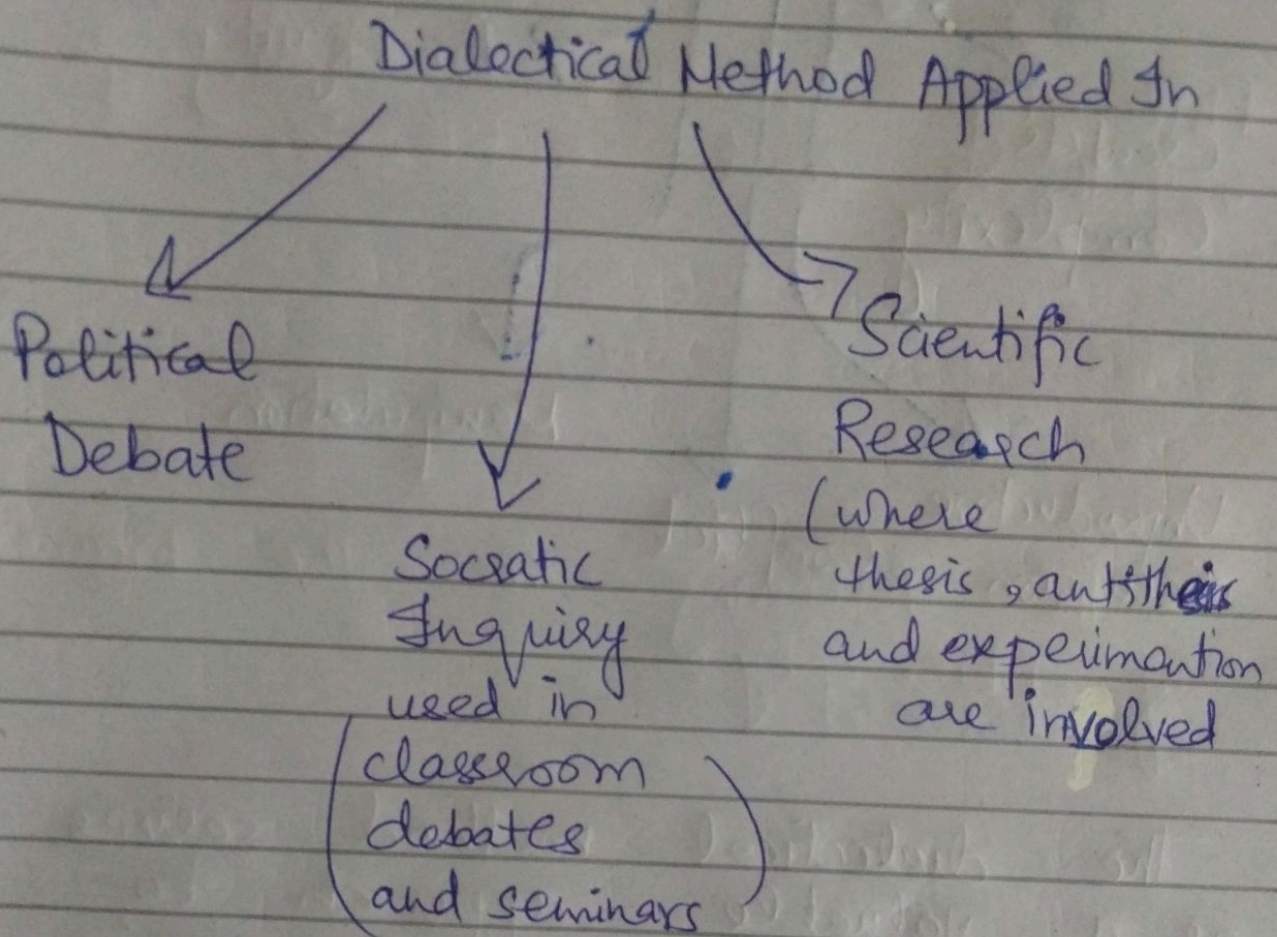 Dialectical Method Applied In
Political
Debate
Socratic
Inquiry
used in
(classroom
debates
and seminars)
Scientific
Research
(where
thesis, antithesis
and experimantion
are involved